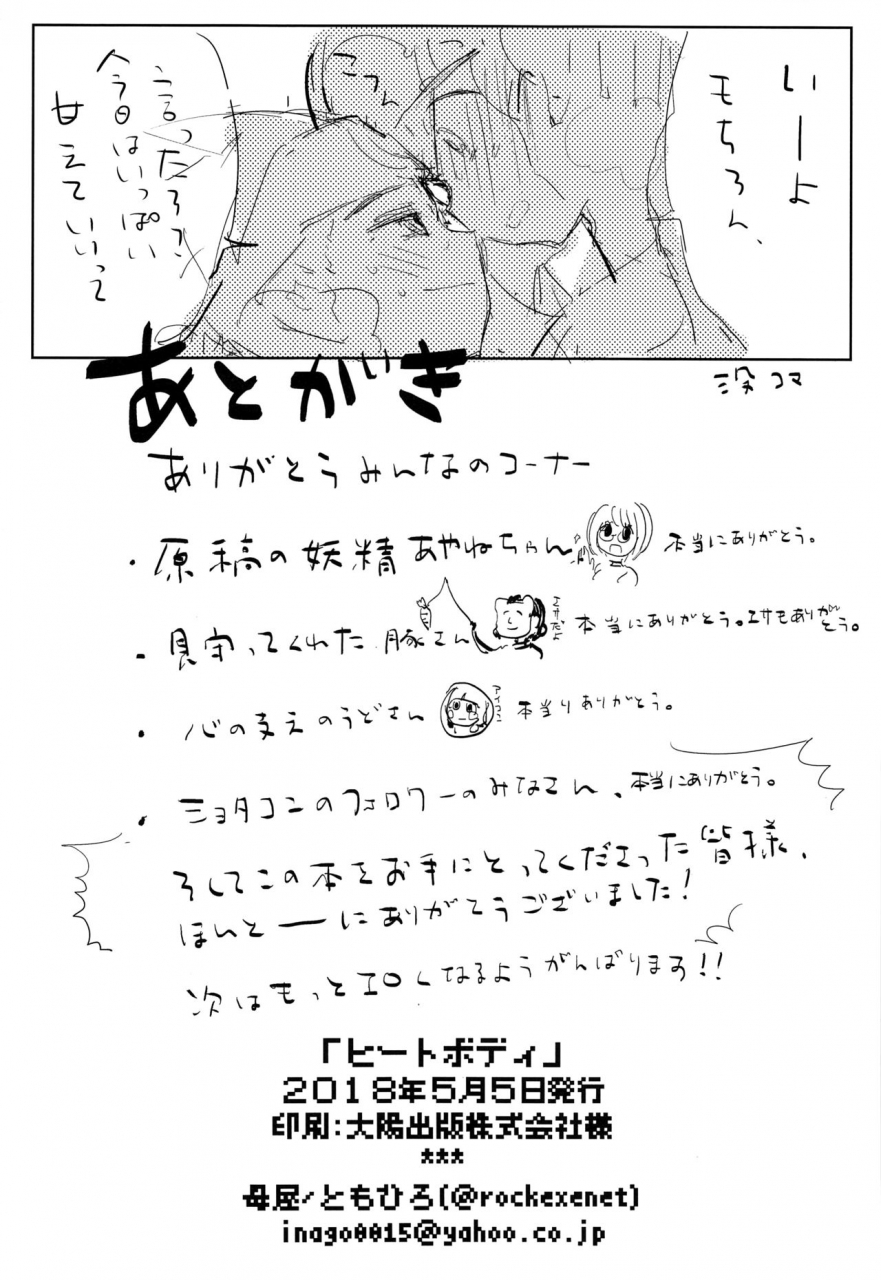 いーよ
モちろん、
こつん
言ったろ?
今日はいっぱい
甘えていいって
没コマ
あとがき
ありがとうみんなのコーナー
・原稿の妖精あやねちゃん
本当にありがとう。
・見守ってくれた豚さん
エサだよ
本当にありがとう。エサもありが
とう。
・心の支えのうどさん
アイコン
本当りありがとう。
・ショタコンのフォロワーのみなさん、本当にありがとう。
そしてこの本をお手にとってくださった皆様、
ほんとーにありがとうございました!
次はもっとエロくなるようがんばります!!
「ヒートボディ」
2018年5月5日発行
印刷:大陽出版株式会社様
***
母屋/ともひろ(@rockexenet)
inago0015@yahoo.co.jp